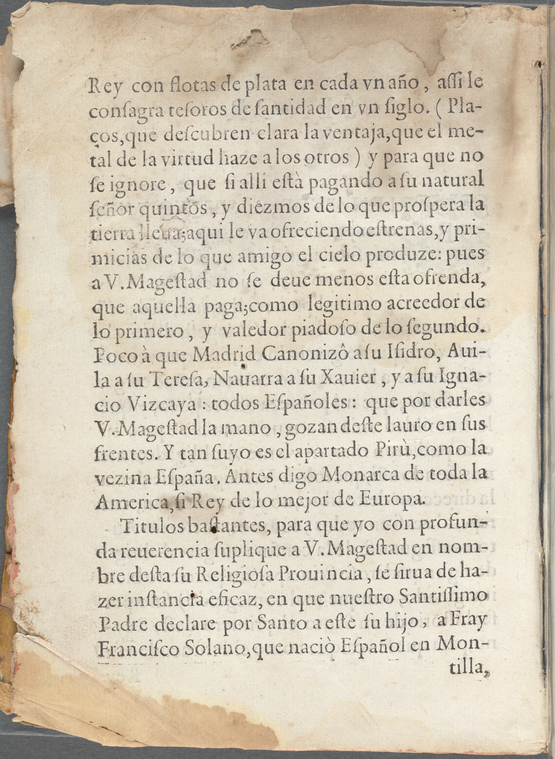 Rey con flotas de plata en cada vn año, aſſi le
conſagra teſoros de ſantidad en vn ſiglo. (Pla-
ços, que deſcubren clara la ventaja, que el me-
tal de la virtud haze a los otros) y para que no
ſe ignore, que ſi alli eſtà pagando a ſu natural
ſeñor quintos, y diezmos de lo que proſpera la
tierra lleua; aqui le va ofreciendo eſtrenas, y pri-
micias de lo que amigo el cielo produze: pues
a V. Mageſtad no ſe deue menos eſta ofrenda,
que aquella paga; como legitimo acreedor de
lo primero, y valedor piadoſo de lo ſegundo.
Poco à que Madrid Canonizô a ſu Iſidro, Aui-
la a ſu Tereſa, Nauarra a ſu Xauier, y a ſu Igna-
cio Vizcaya: todos Eſpañoles: que por darles
V. Mageſtad la mano, gozan deſte lauro en ſus
frentes. Y tan ſuyo es el apartado Pirù, como la
vezina Eſpaña. Antes digo Monarca de toda la
America, ſi Rey de lo mejor de Europa.
Titulos baſtantes, para que yo con profun-
da reuerencia ſuplique a V. Mageſtad en nom-
bre deſta ſu Religioſa Prouincia, ſe ſirua de ha-
zer inſtancia eficaz, en que nueſtro Santiſſimo
Padre declare por Santo a eſte ſu hijo, a Fray
Franciſco Solano, que naciò Eſpañol en Mon-
tilla,